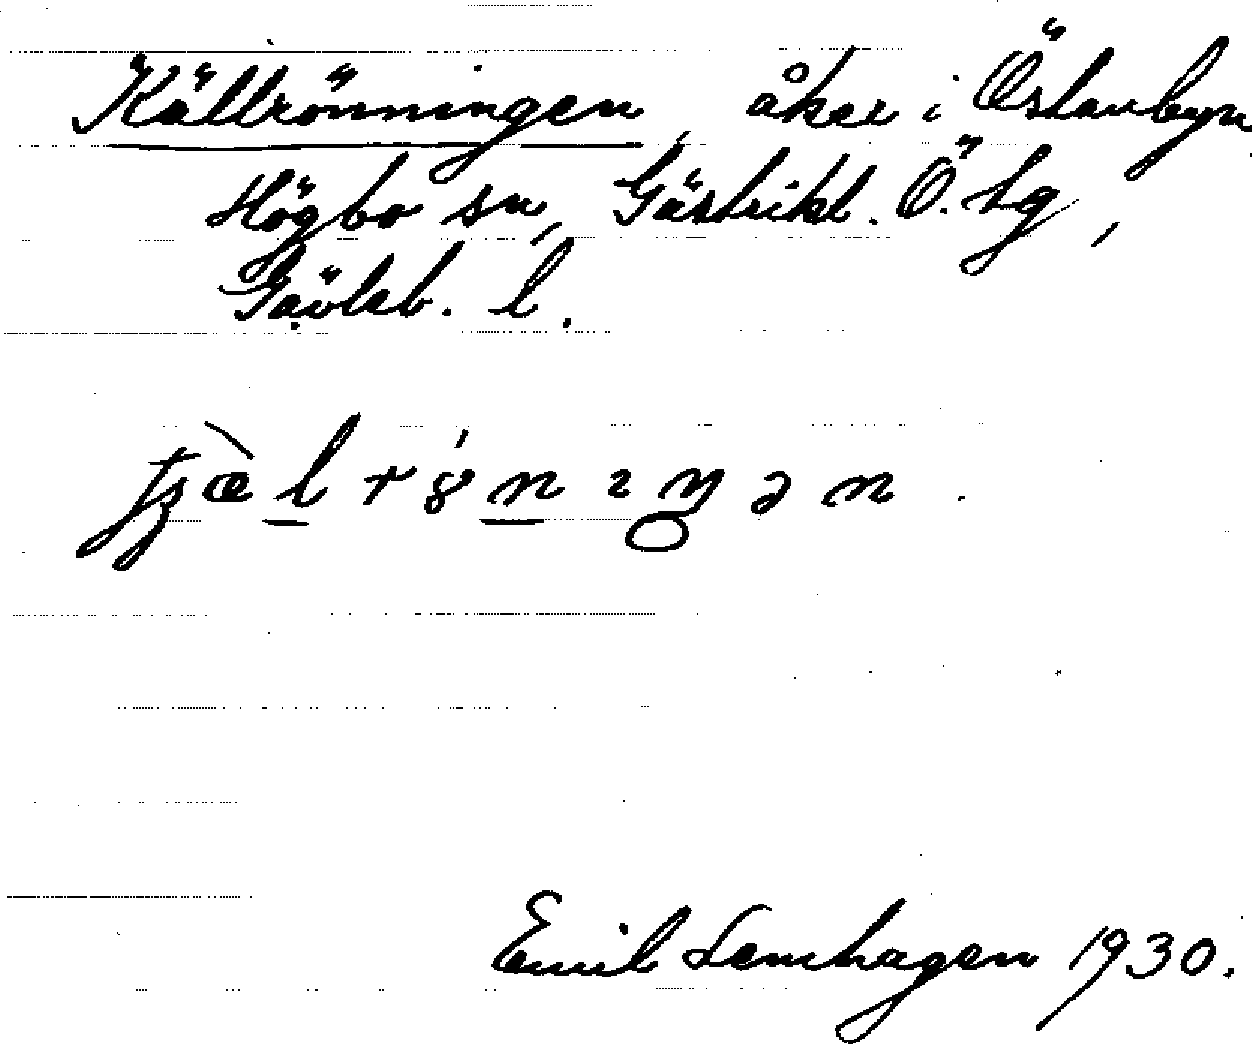 Källrönningen, åker i Östanbyn
Högbo sn, Gästrikl. Ö. tg,
Gävleb. l.
Emil Lemhagen 1930.